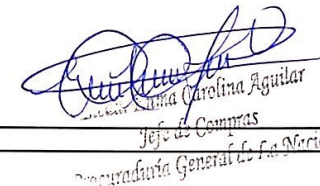 Carolina Aguilar
Jefe de Compras
Procuraduría General de La Nación